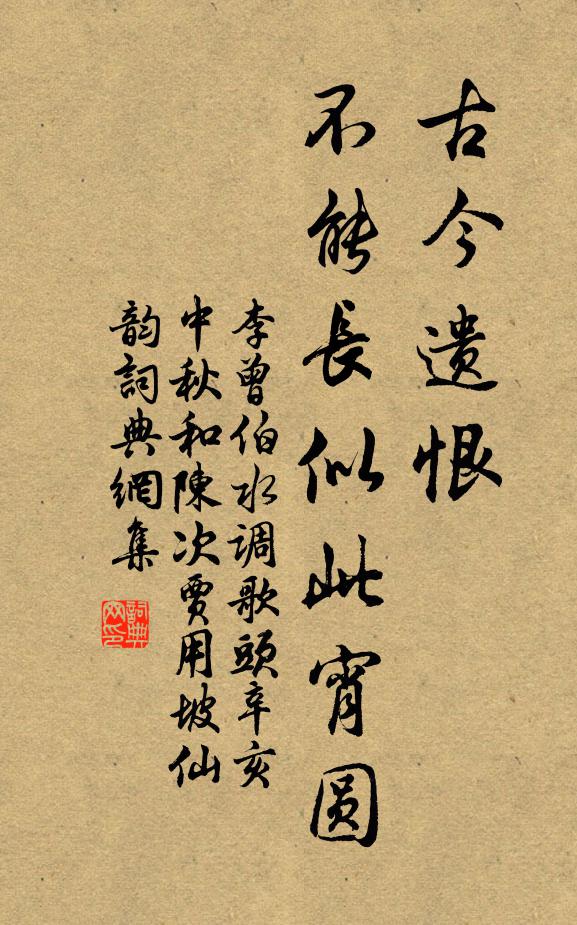 古今遗恨
不能長似此宵圆
李曾伯水调歌頭辛亥
中秋和陳次賈用坡仙
韵詞典網集
詞典
网印